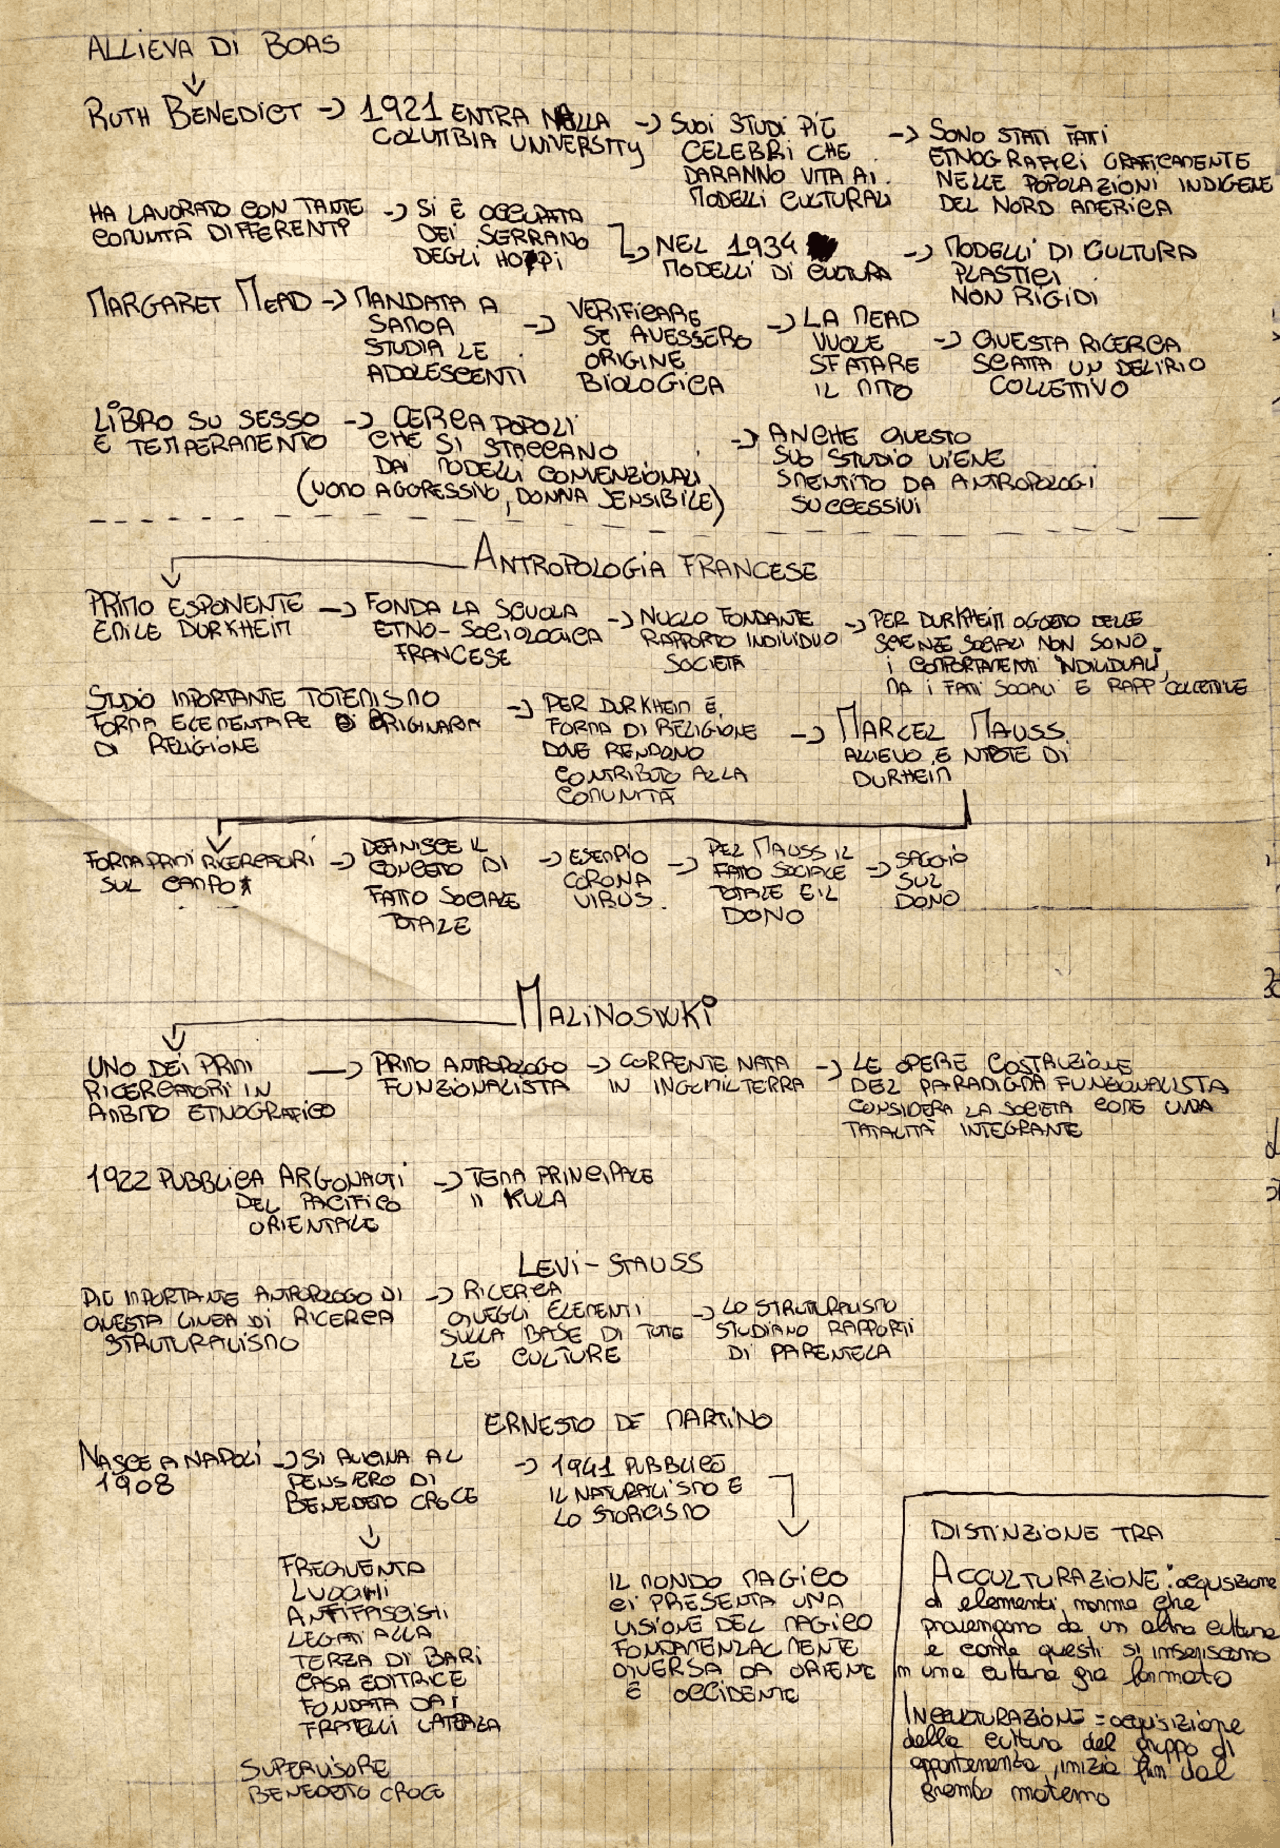 ALLIEVA DI BOAS
RUTH BENEDICT -> 1921 ENTRA NELLA
COLUMBIA UNIVERSITY
-> SUOI STUDI PIÙ
CELEBRI CHE
DARANNO VITA AI
MODELLI CULTURALI
-> SONO STATI FATTI
ETNOGRAFICI GRAFICAMENTE
NELLE POPOLAZIONI INDIGENE
DEL NORD AMERICA
HA LAVORATO CON TANTE
COMUNITÀ DIFFERENTI
-> SI È OCCUPATA
DEI SERRANO
DEGLI HOPPI
-> NEL 1934
MODELLI DI CULTURA
-> MODELLI DI CULTURA
PLASTICI
NON RIGIDI
MARGARET MEAD -> MANDATA A
SAMOA
STUDIA LE
ADOLESCENTI
-> VERIFICARE
SE AVESSERO
ORIGINE
BIOLOGICA
-> LA MEAD
VUOLE
SFATARE
IL MITO
-> QUESTA RICERCA
SCATTA UN DELIRIO
COLLETTIVO
LIBRO SU SESSO
E TEMPERAMENTO
-> CERCA POPOLI
CHE SI STACCANO
DAI MODELLI CONVENZIONALI
(UOMO AGGRESSIVO, DONNA SENSIBILE)
-> ANCHE QUESTO
SUO STUDIO VIENE
SMENTITO DA ANTROPOLOGI
SUCCESSIVI
ANTROPOLOGIA FRANCESE
PRIMO ESPONENTE
EMILE DURKHEIM
-> FONDA LA SCUOLA
ETNO-SOCIOLOGICA
FRANCESE
-> NUCLO FONDANTE
RAPPORTO INDIVIDUO
SOCIETÀ
-> PER DURKHEIM OGGETTO DELLE
SCIENZE SOCIALI NON SONO
I COMPORTAMENTI INDIVIDUALI,
MA I FATTI SOCIALI E RAPP COLLETTIVE
STUDIO IMPORTANTE TOTEMISMO
FORMA ELEMENTARE DI ORIGINARIA
DI RELIGIONE
-> PER DURKHEIM È
FORMA DI RELIGIONE
DOVE RENDONO
CONTRIBUTO ALLA
COMUNITÀ
-> MARCEL MAUSS
ALLIEVO E NIPOTE DI
DURHEIM
FORMA PRIMI RICERCATORI
SUL CAMPO*
-> DEFINISCE IL
CONCETTO DI
FATTO SOCIALE
TOTALE
-> ESEMPIO
CORONA
VIRUS.
-> PER MAUSS IL
FATTO SOCIALE
TOTALE E IL
DONO
-> SAGGIO
SUL
DONO
MALINOSWKI
UNO DEI PRIMI
RICERCATORI IN
AMBITO ETNOGRAFICO
-> PRIMO ANTROPOLOGO
FUNZIONALISTA
-> CORRENTE NATA
IN INGHILTERRA
-> LE OPERE COSTRUZIONE
DEL PARADIGMA FUNZIONALISTA
CONSIDERA LA SOCIETÀ COME UNA
TOTALITÀ INTEGRANTE
1922 PUBBLICA ARGONAUTI
DEL PACIFICO
ORIENTALE
-> TEMA PRINCIPALE
IL KULA
LEVI-STAUSS
PIÙ IMPORTANTE ANTROPOLOGO DI
QUESTA LINEA DI RICERCA
STRUTURALISMO
-> RICERCA
QUEGLI ELEMENTI
SULLA BASE DI TUTTE
LE CULTURE
-> LO STRUTURALISMO
STUDIANO RAPPORTI
DI PARENTELA
ERNESTO DE MARTINO
NASCE A NAPOLI
1908
-> SI AVVICINA AL
PENSIERO DI
BENEDETTO CROCE
-> 1941 PUBBLICÒ
IL NATURALISMO E
LO STORICISMO
FREQUENTA
LUOGHI
ANTIFASCISTI
LEGATI ALLA
TERZA DI BARI
CASA EDITRICE
FONDATA DAI
FRATELLI LATERZA
SUPERVISORE
BENEDETTO CROCE
IL MONDO MAGICO
CI PRESENTA UNA
VISIONE DEL MAGICO
FONDAMENTALMENTE
DIVERSA DA ORIENTE
E OCCIDENTE
DISTINZIONE TRA
ACCULTURAZIONE: acquisizione
di elementi, norme che
provengono da un altra cultura
e come questi si inseriscono
in una cultura già formata
INCULTURAZIONE = acquisizione
della cultura del gruppo di
appartenenza, inizia fin dal
grembo materno